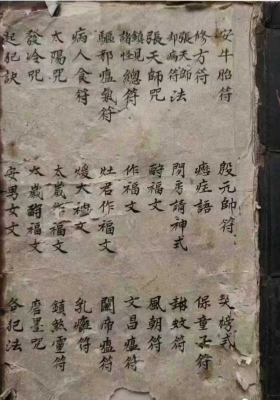 安牛胎符
修方符
張天師却病符法
張天師咒
鎮見諸怪總符
驅邪瘟氣符
病人食符
太陽咒
發冷咒
起犯訣
殷元帥符
瘧症語
問房請神式
酧福文
作福文
灶君作福文
大文
太歲作福文
太歲酧福文
安男女文
榜式
保童子符
蚊符
鳳朝符
文昌瘟符
關帝瘟符
乳符
鎮煞符
磨墨咒
各犯法